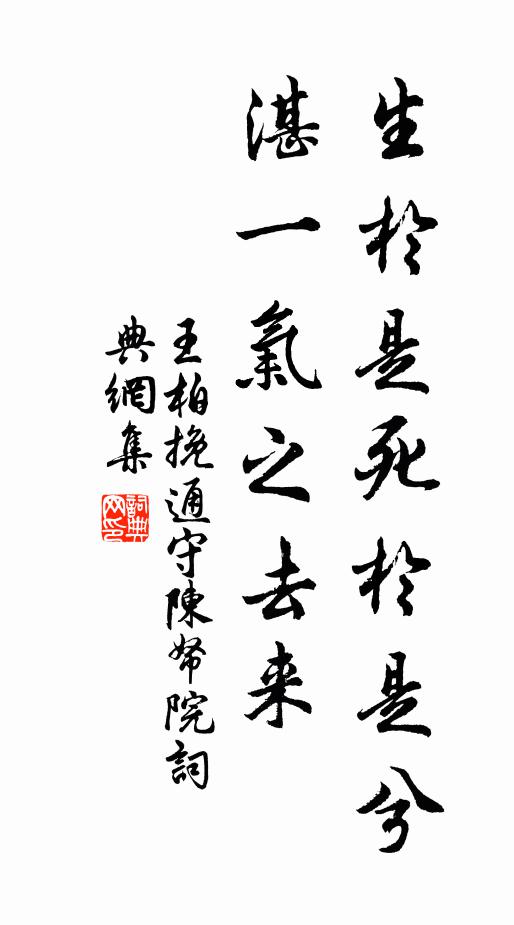 生於是死於是兮
湛一氣之去来
王柏挽通守陳帑院詞
典網集
詞典网印